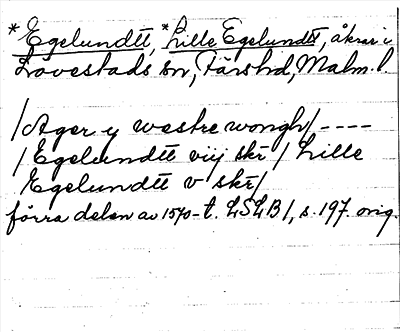 *Egelundtt, *Lille Egelundtt, åkrar i
Lövestads sn, Färs hd, Malm. l.
/Ager y westre wongh/ ----
/Egelundtt viij skr / Lille
Egelundtt v skr/
förra delen av 1570-t. LSLB 1, s. 197. orig.